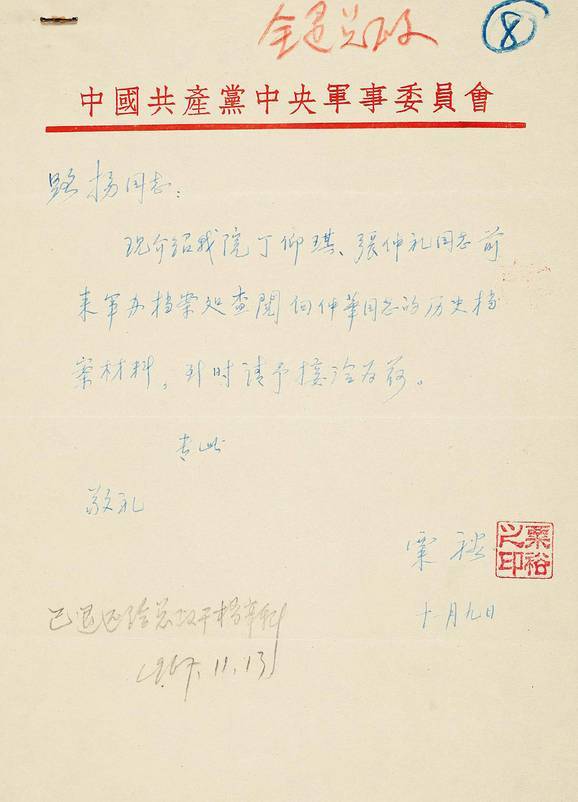 全退总政
8
中國共產黨中央軍事委員會
路揚同志：
现介绍我院丁仰琪、張仲礼同志前
来军办档案处查閱向仲華同志的历史档
案材料，到时请予接洽为荷。
专此
敬礼
粟裕
粟裕之印
十月九日
已退总政干档
1967.11.13